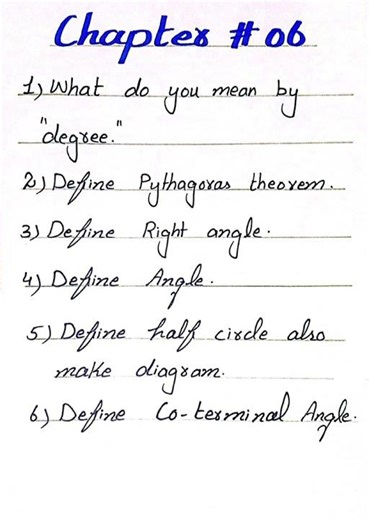 Chapter # 06
1) What do you mean by
"degree."
2) Define Pythagoras theorem.
3) Define Right angle.
4) Define Angle.
5) Define half circle also
make diagram.
6) Define Co-terminal Angle.